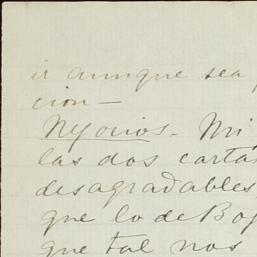 ir aunque sea
cion—
Nyonios. Mi
las dos carta
desagradables,
que lo de Bog
que tal nos